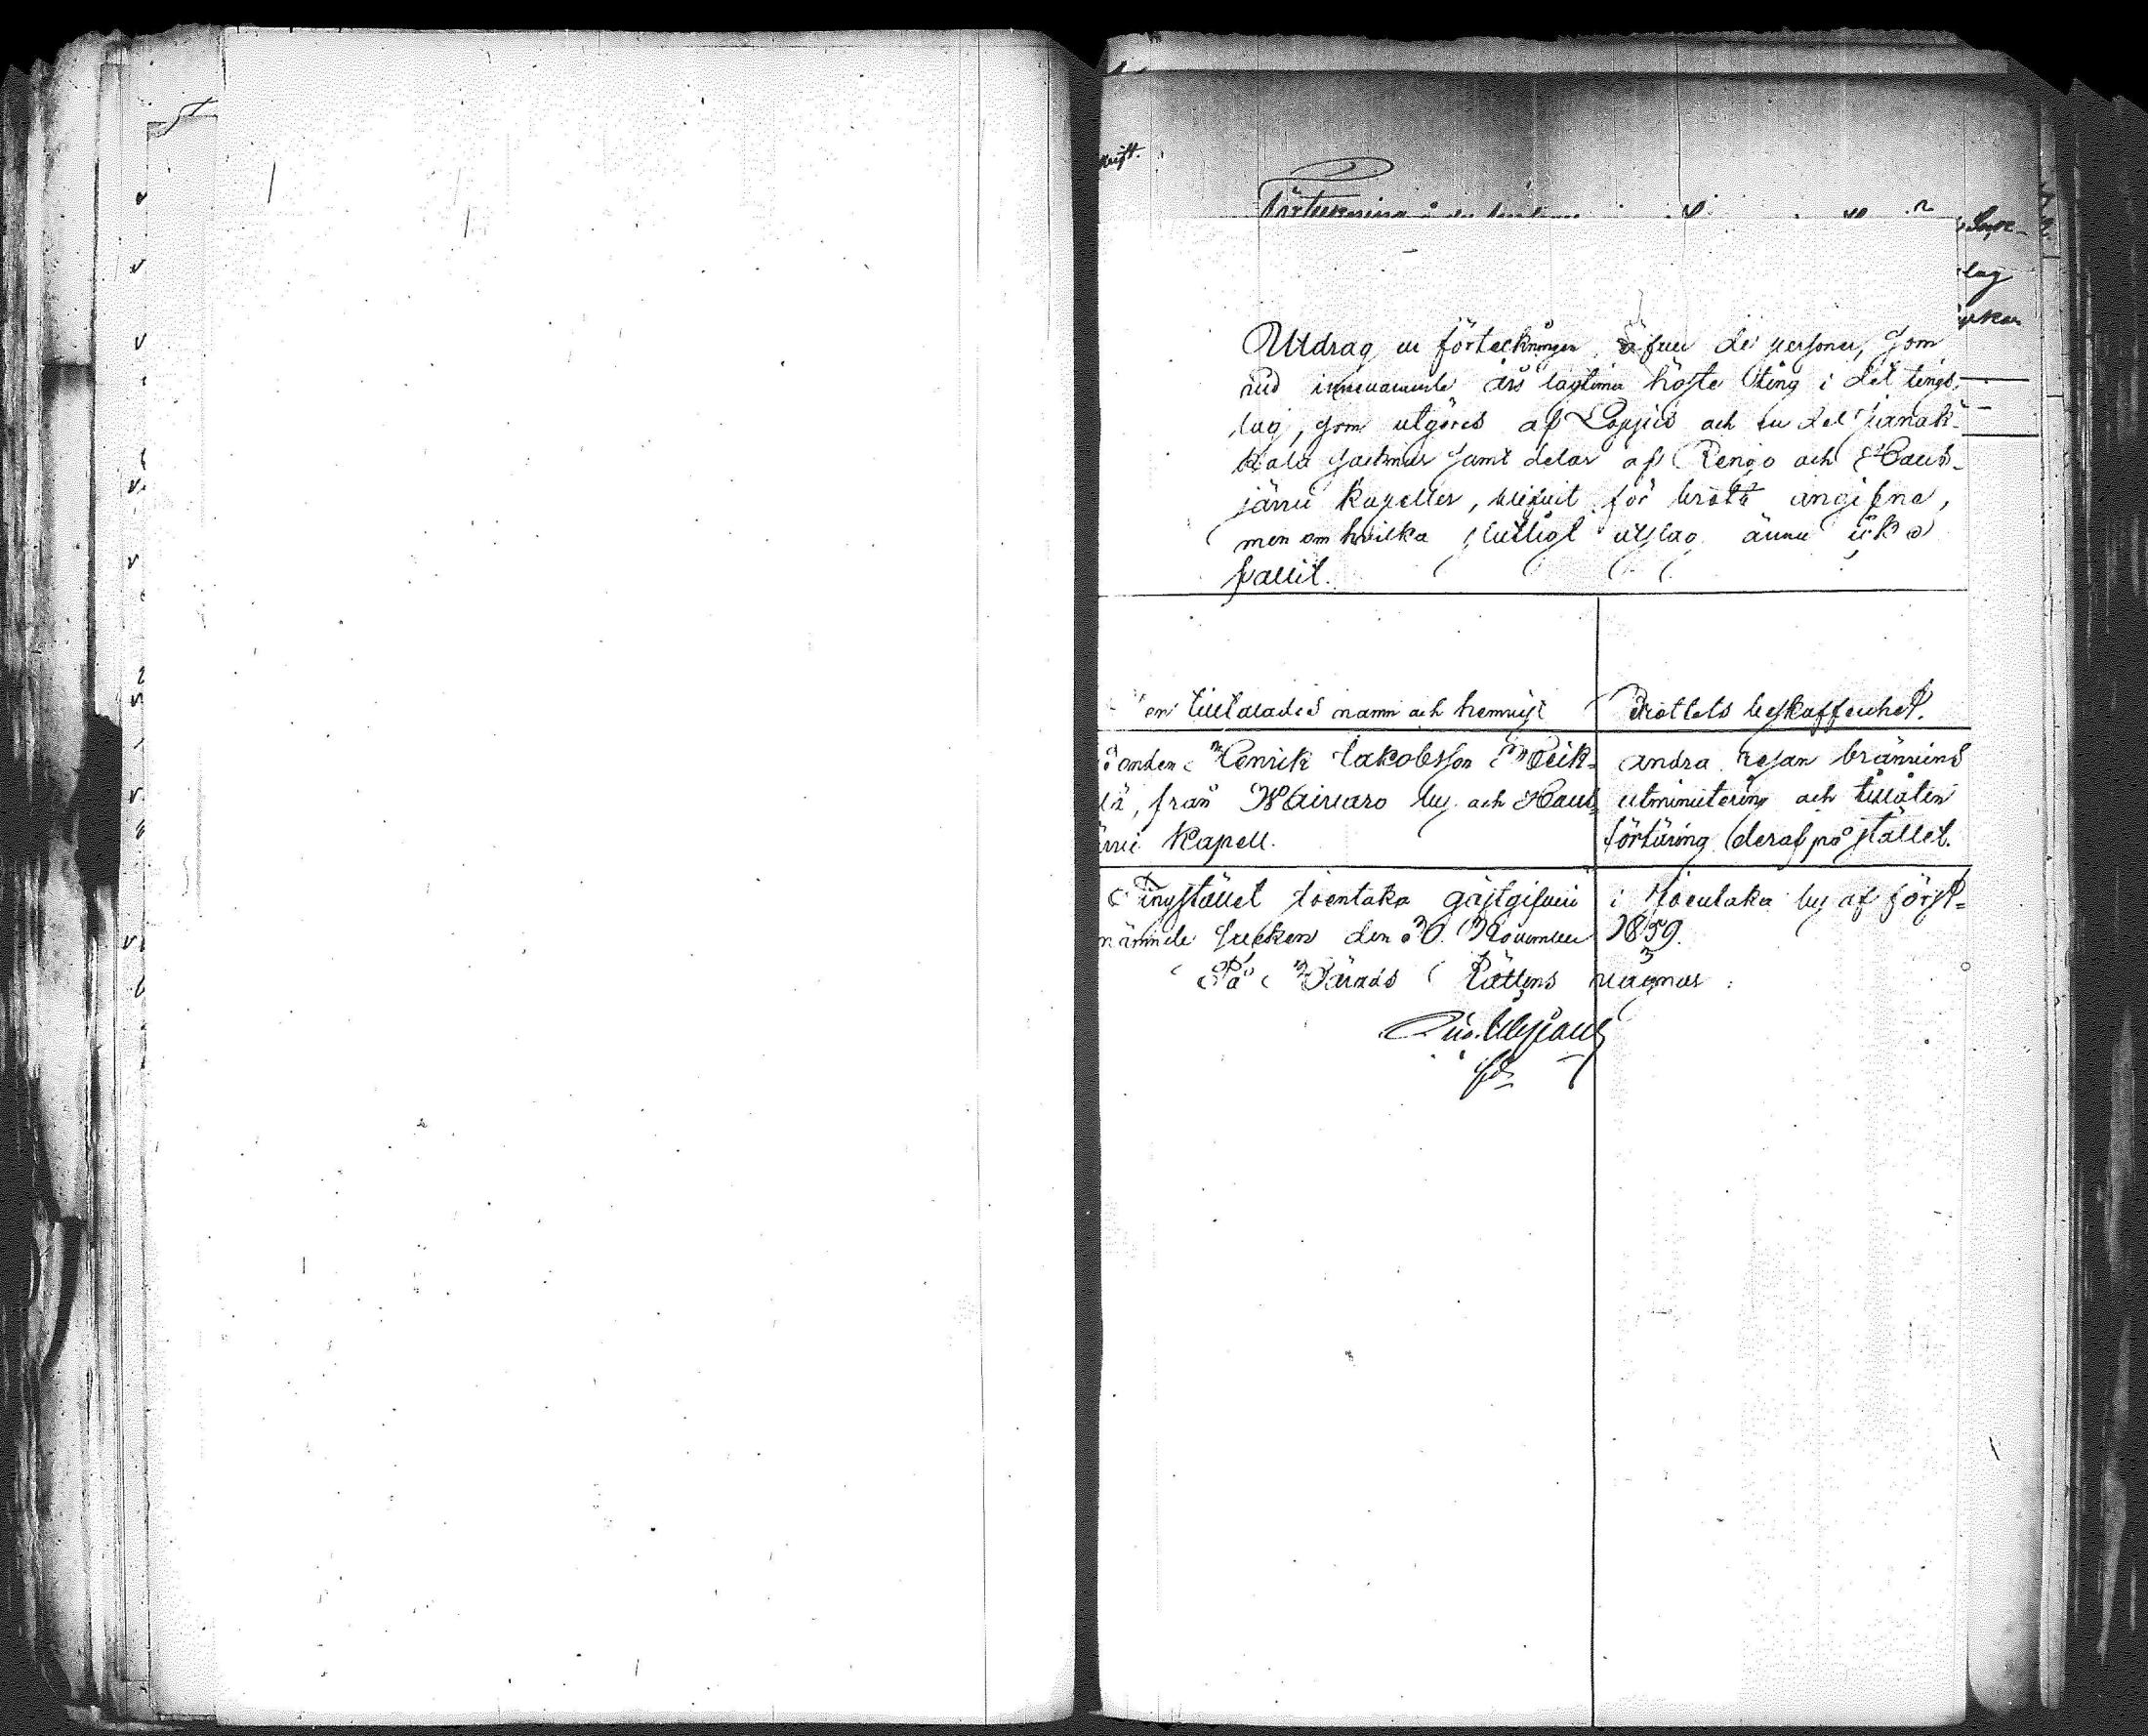 Utdrag ur förteckningen öfver de personer, som
vid innevarande års lagtima höste ting i det tings-
lag, som utgöres af Loppis och en del Janak-
kala socknar samt delar af Rengo och Haus-
järvi kapeller, blifvit för brott angifne,
men om hvilka slutligt utslag ännu icke
fallit.
den tilltalades namn och hemvist
Brottets beskaffenhet.
Bonden Henrik Jakobsson Heik-
lä, från Waivaro by och Haus-
järvi Kapell.
andra resan bränvins
utminutering och tillåten
förtäring deraf på stället.
Tingstället Toentaka gästgifveri i Toentaka by af först-
nämnde socken den 30 November 1859.
På Härads Rättens vägnar: